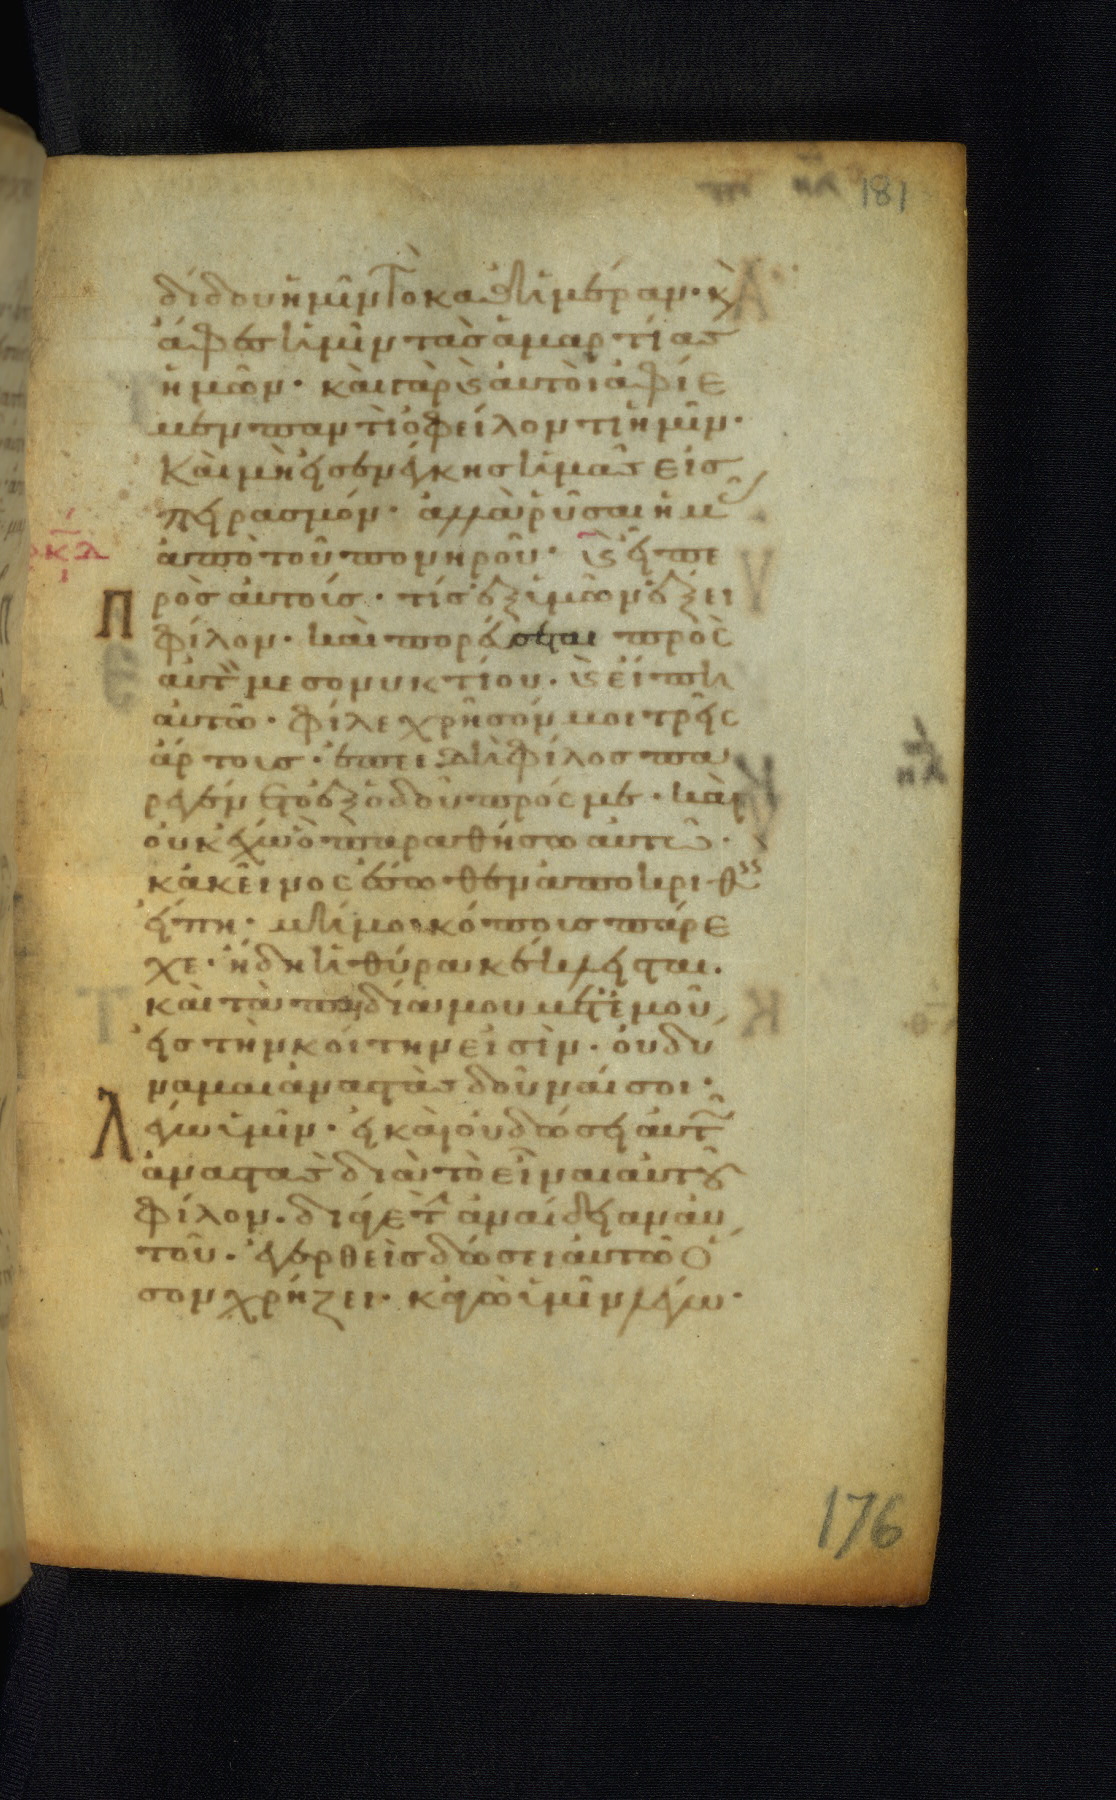 181
δίδου ἡμῖν τὸ καθημέραν· κ(αὶ)
ἄφες ἡμῖν τὰς ἁμαρτίας
ἡμῶν· καὶ γὰρ κ(αὶ) αὐτοὶ ἀφίε
μεν παντὶ ὀφείλοντι ἡμῖν·
Καὶ μὴ εἰσενέγκης ἡμᾶς εἰς
πειρασμόν· ἀλλὰ ῥῦσαι ἡμᾶς
ἀπὸ τοῦ πονηροῦ· κ(αὶ) εἶπε
ρκδ
Πρὸς αὐτοίς· τίς ἐξ ἡμῶν ἕξει
φίλον· καὶ πορεύσεται πρὸς
αὐτὸν μεσονυκτίου· κ(αὶ) εἴπη
αὐτῶ· φίλε χρῆσόν μοι τρεῖς
ἄρτοις· ἐπειδὴ φίλος πα
ρεγένετο ἐξ ὁδοῦ πρός με· καὶ
οὐκ ἔχω ὃ παραθήσω αὐτῶ·
κἀκεῖνος ἔσωθεν ἀποκριθεὶς
εἴπη· μή μοι κόποις πάρε
χε· ἤδη ἡ θύρα κέκλεισται·
καὶ τὰ παιδία μου μετ' ἐμοῦ
εἰς τὴν κοίτην εἰσὶν· οὐ δύ
ναμαι ἀναστὰς δοῦναί σοι·
Λέγω ὑμῖν· εἰ καὶ οὐ δώσει αὐτῶ
ἀναστὰς διὰ τὸ εἶναι αὐτοῦ
φίλον· διά γε τὴν ἀναίδειαν αὐ
τοῦ· ἐγερθεὶς δώσει αὐτῶ ὅ
σον χρήζει· κἀγὼ ὑμῖν λέγω·
176